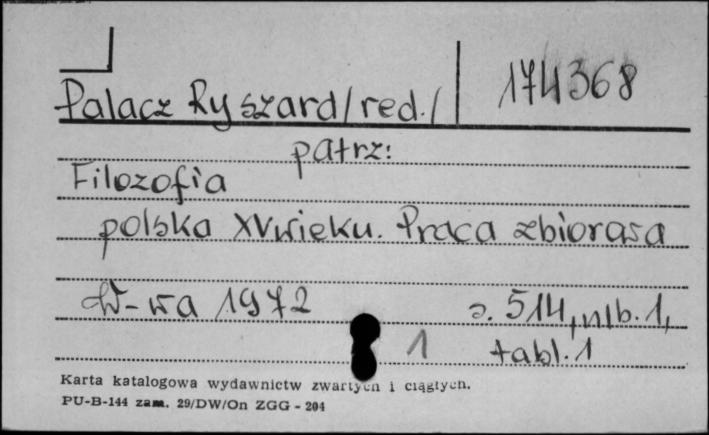 Palacz Ryszard /red./ 174368
patrz:
Filozofia
polska XV wieku. Praca zbiorowa
W-wa 1972 s. 514, nlb. 1,
1 tabl. 1
Karta katalogowa wydawnictw zwartych i ciągłych.
PU-B-144 zam. 29/DW/On ZGG - 204